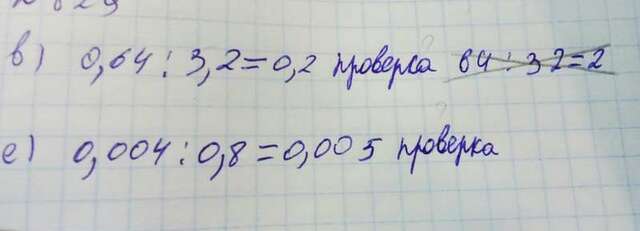 в) 0,64 : 3,2 = 0,2 проверка 64 : 32 = 2
е) 0,004 : 0,8 = 0,005 проверка